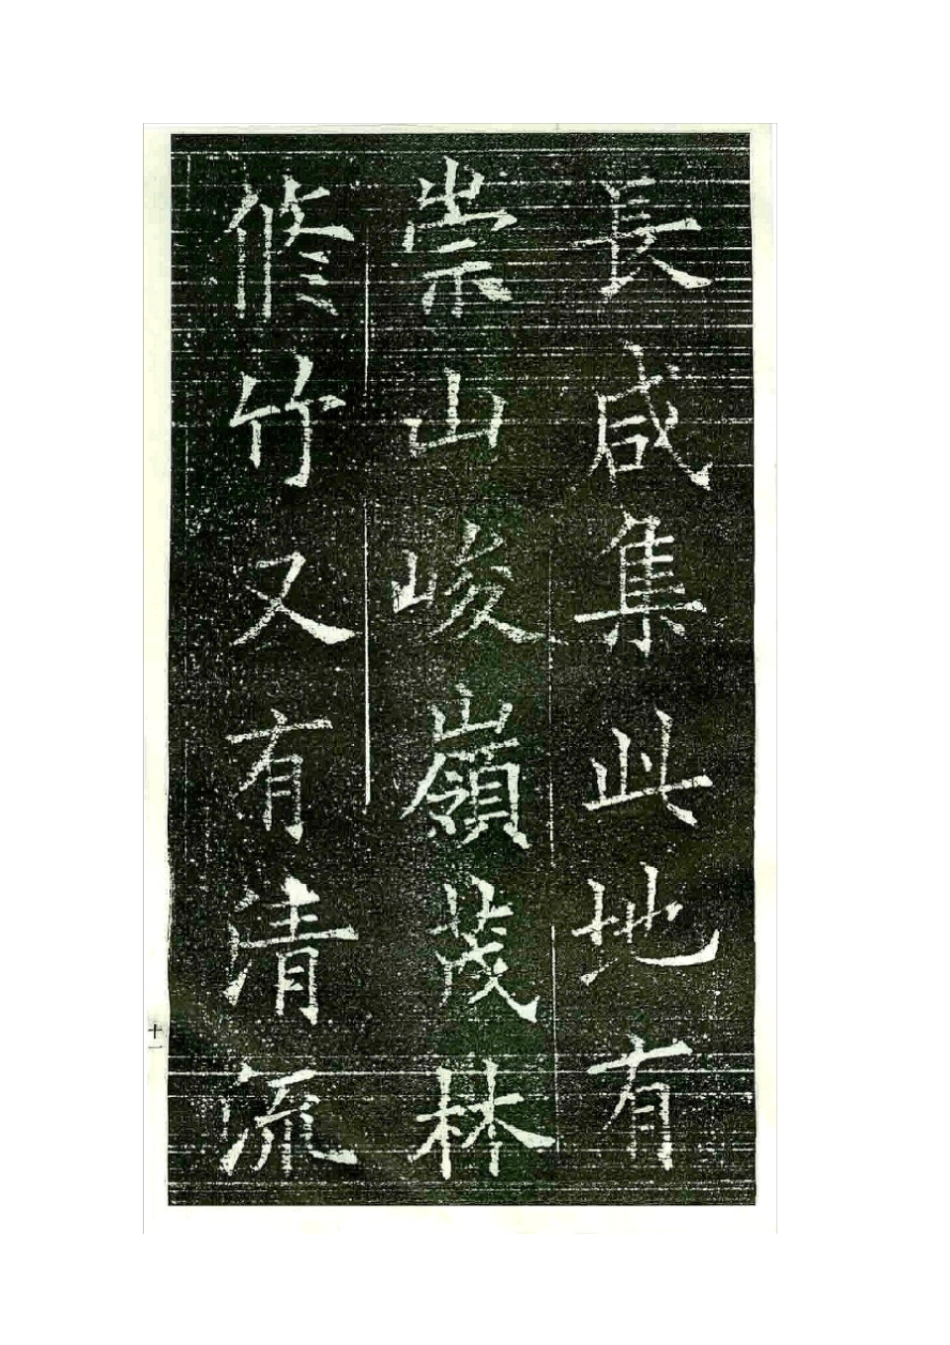 長咸集此地有
崇山峻嶺茂林
修竹又有清流
十一